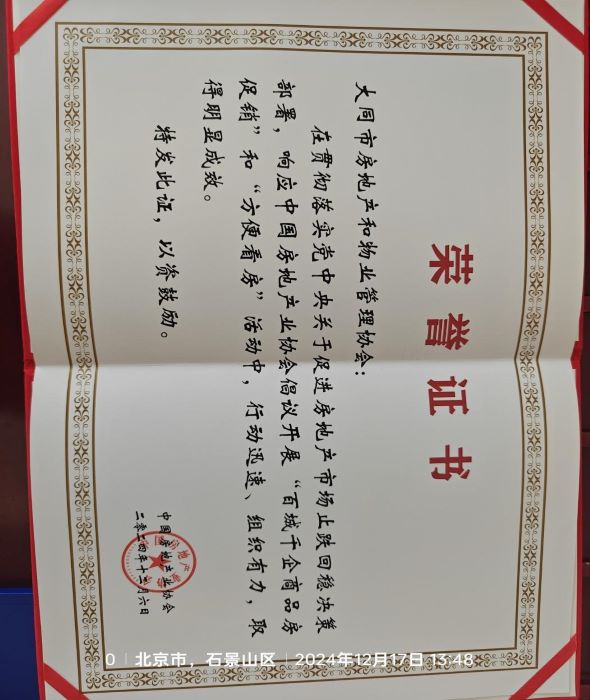 荣誉证书
大同市房地产和物业管理协会：
在贯彻落实党中央关于促进房地产市场止跌回稳决策
部署，响应中国房地产业协会倡议开展“百城千企商品房
促销”和“方便看房”活动中，行动迅速、组织有力，取
得明显成效。
特发此证，以资鼓励。
中国房地产业协会
二零二四年十二月六日
0 北京市，石景山区 2024年12月17日 13:48